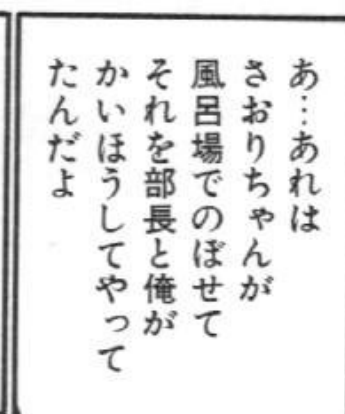 あ…あれは
さおりちゃんが
風呂場でのぼせて
それを部長と俺が
かいほうしてやって
たんだよ